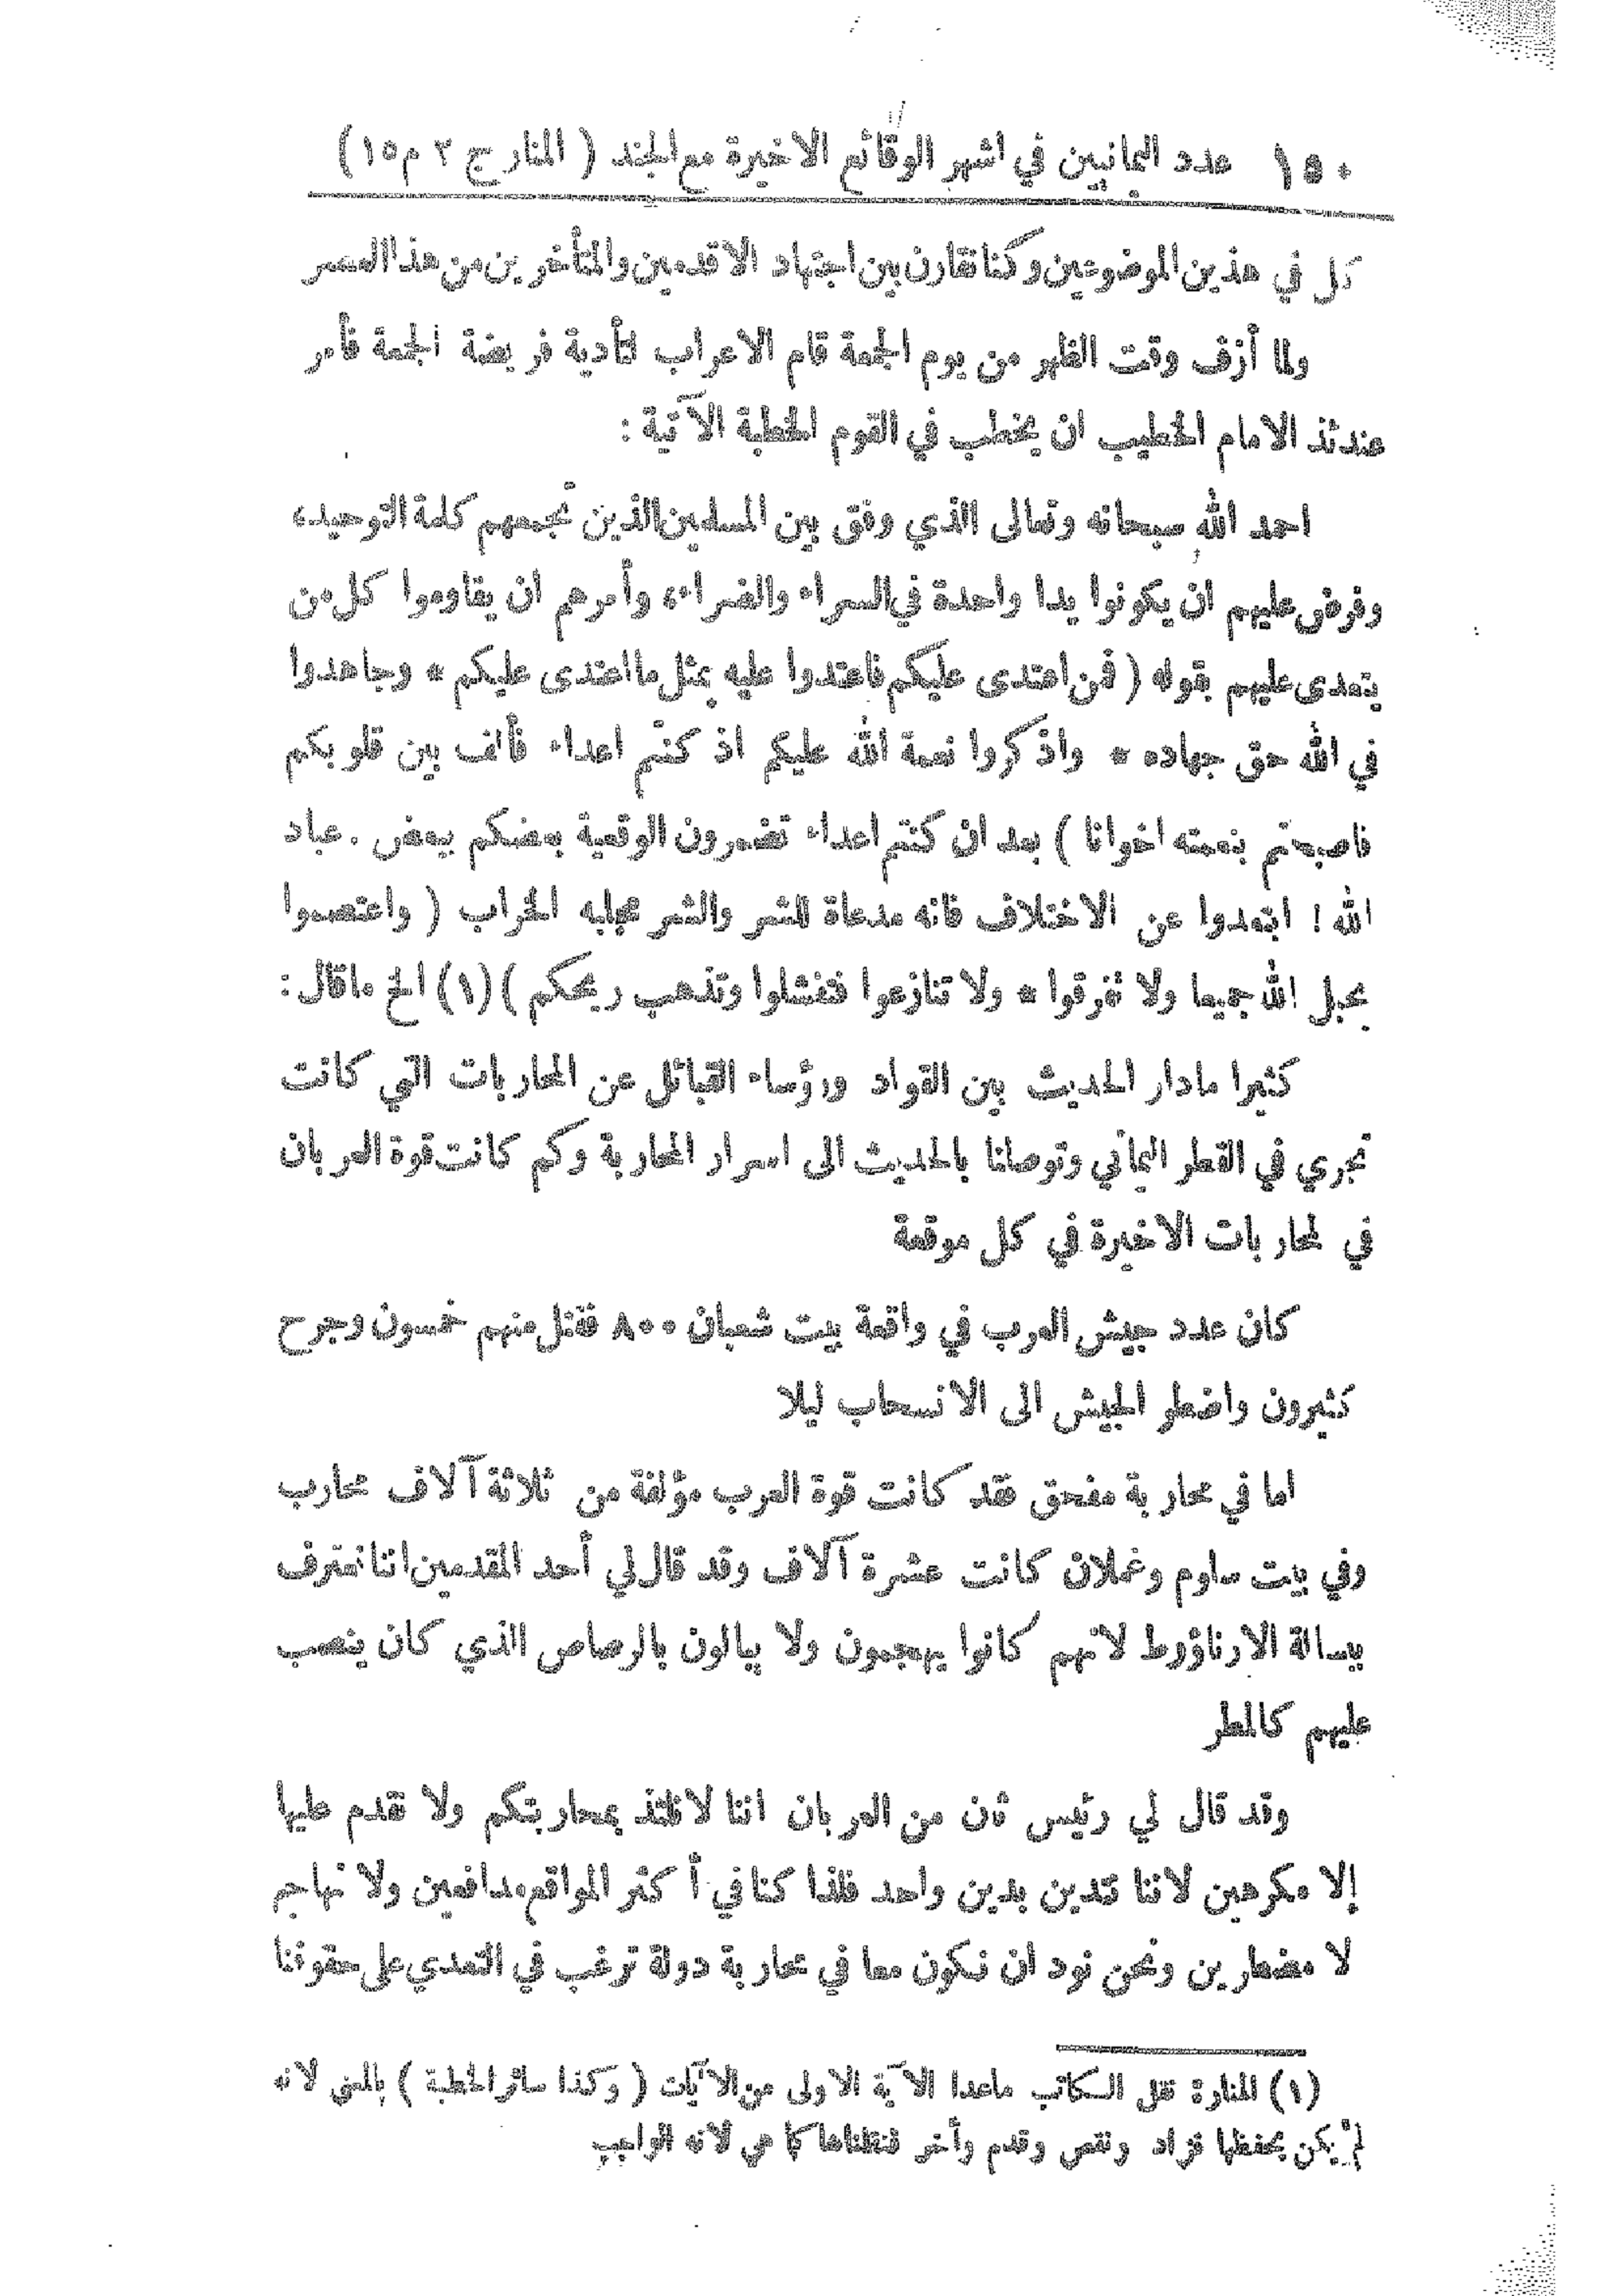 ١٥٠ عدد اليمانيين في اشهر الوقائع الاخيرة مع الجند ( المنار ج ٢ م ١٥ )
كل في هذين الموضوعين وكنا نقارن بين اجتهاد الاقدمين والمتأخرين من هذا العصر
ولما أزف وقت الظهر من يوم الجمعة قام الاعراب لتأدية فريضة الجمعة فأمر
عندئذ الامام الخطيب ان يخطب في القوم الخطبة الآتية :
احمد الله سبحانه وتعالى الذي وفق بين المسلمين الذين تجمعهم كلمة التوحيد،
وفرض عليهم ان يكونوا يدا واحدة في السراء والضراء، وأمرهم ان يقاوموا كل من
يتعدى عليهم بقوله ( فمن اعتدى عليكم فاعتدوا عليه بمثل ما اعتدى عليكم * وجاهدوا
في الله حق جهاده * واذكروا نعمة الله عليكم اذ كنتم اعداء فألف بين قلوبكم
فاصبحتم بنعمته اخوانا ) بعد ان كنتم اعداء تضمرون الوقعية بعضكم ببعض . عباد
الله ! ابتعدوا عن الاختلاف فانه مدعاة للشر والشر مجلبه الخراب ( واعتصموا
بحبل الله جميعا ولا تفرقوا * ولا تنازعوا فتفشلوا وتذهب ريحكم ) (١) الخ ماقال :
كثيرا مادار الحديث بين القواد ورؤساء القبائل عن المحاربات التي كانت
تجري في القطر اليماني وتوصلنا بالحديث الى اسرار المحاربة وكم كانت قوة العربان
في لمحاربات الاخيرة في كل موقعة
كان عدد جيش العرب في واقعة بيت شعبان ٨٠٠ فقتل منهم خمسون وجرح
كثيرون واضطر الجيش الى الانسحاب ليلا
اما في محاربة مفحق فقد كانت قوة العرب مؤلفة من ثلاثة آلاف محارب
وفي بيت سلوم وغملان كانت عشرة آلاف وقد قال لي أحد المقدمين اننا نعترف
ببسالة الارناؤوط لانهم كانوا يهجمون ولا يبالون بالرصاص الذي كان ينصب
عليهم كالمطر
وقد قال لي رئيس ثان من العربان اننا لا نلتذ بمحاربتكم ولا نقدم عليها
إلا مكرهين لاننا ندين بدين واحد فلذا كنا في أكثر المواقع مدافعين ولا نهاجم
لا مضطرين ونحن نود ان نكون معا في محاربة دولة ترغب في التعدي على حقوقنا
(١) المنار: نقل الكاتب ماعدا الآية الاولى من الآيات ( وكذا سائر الخطبة ) بالمعنى لانه
لم يكن يحفظها فزاد ونقص وقدم وأخر فنقلناها كما هي لانه الواجب